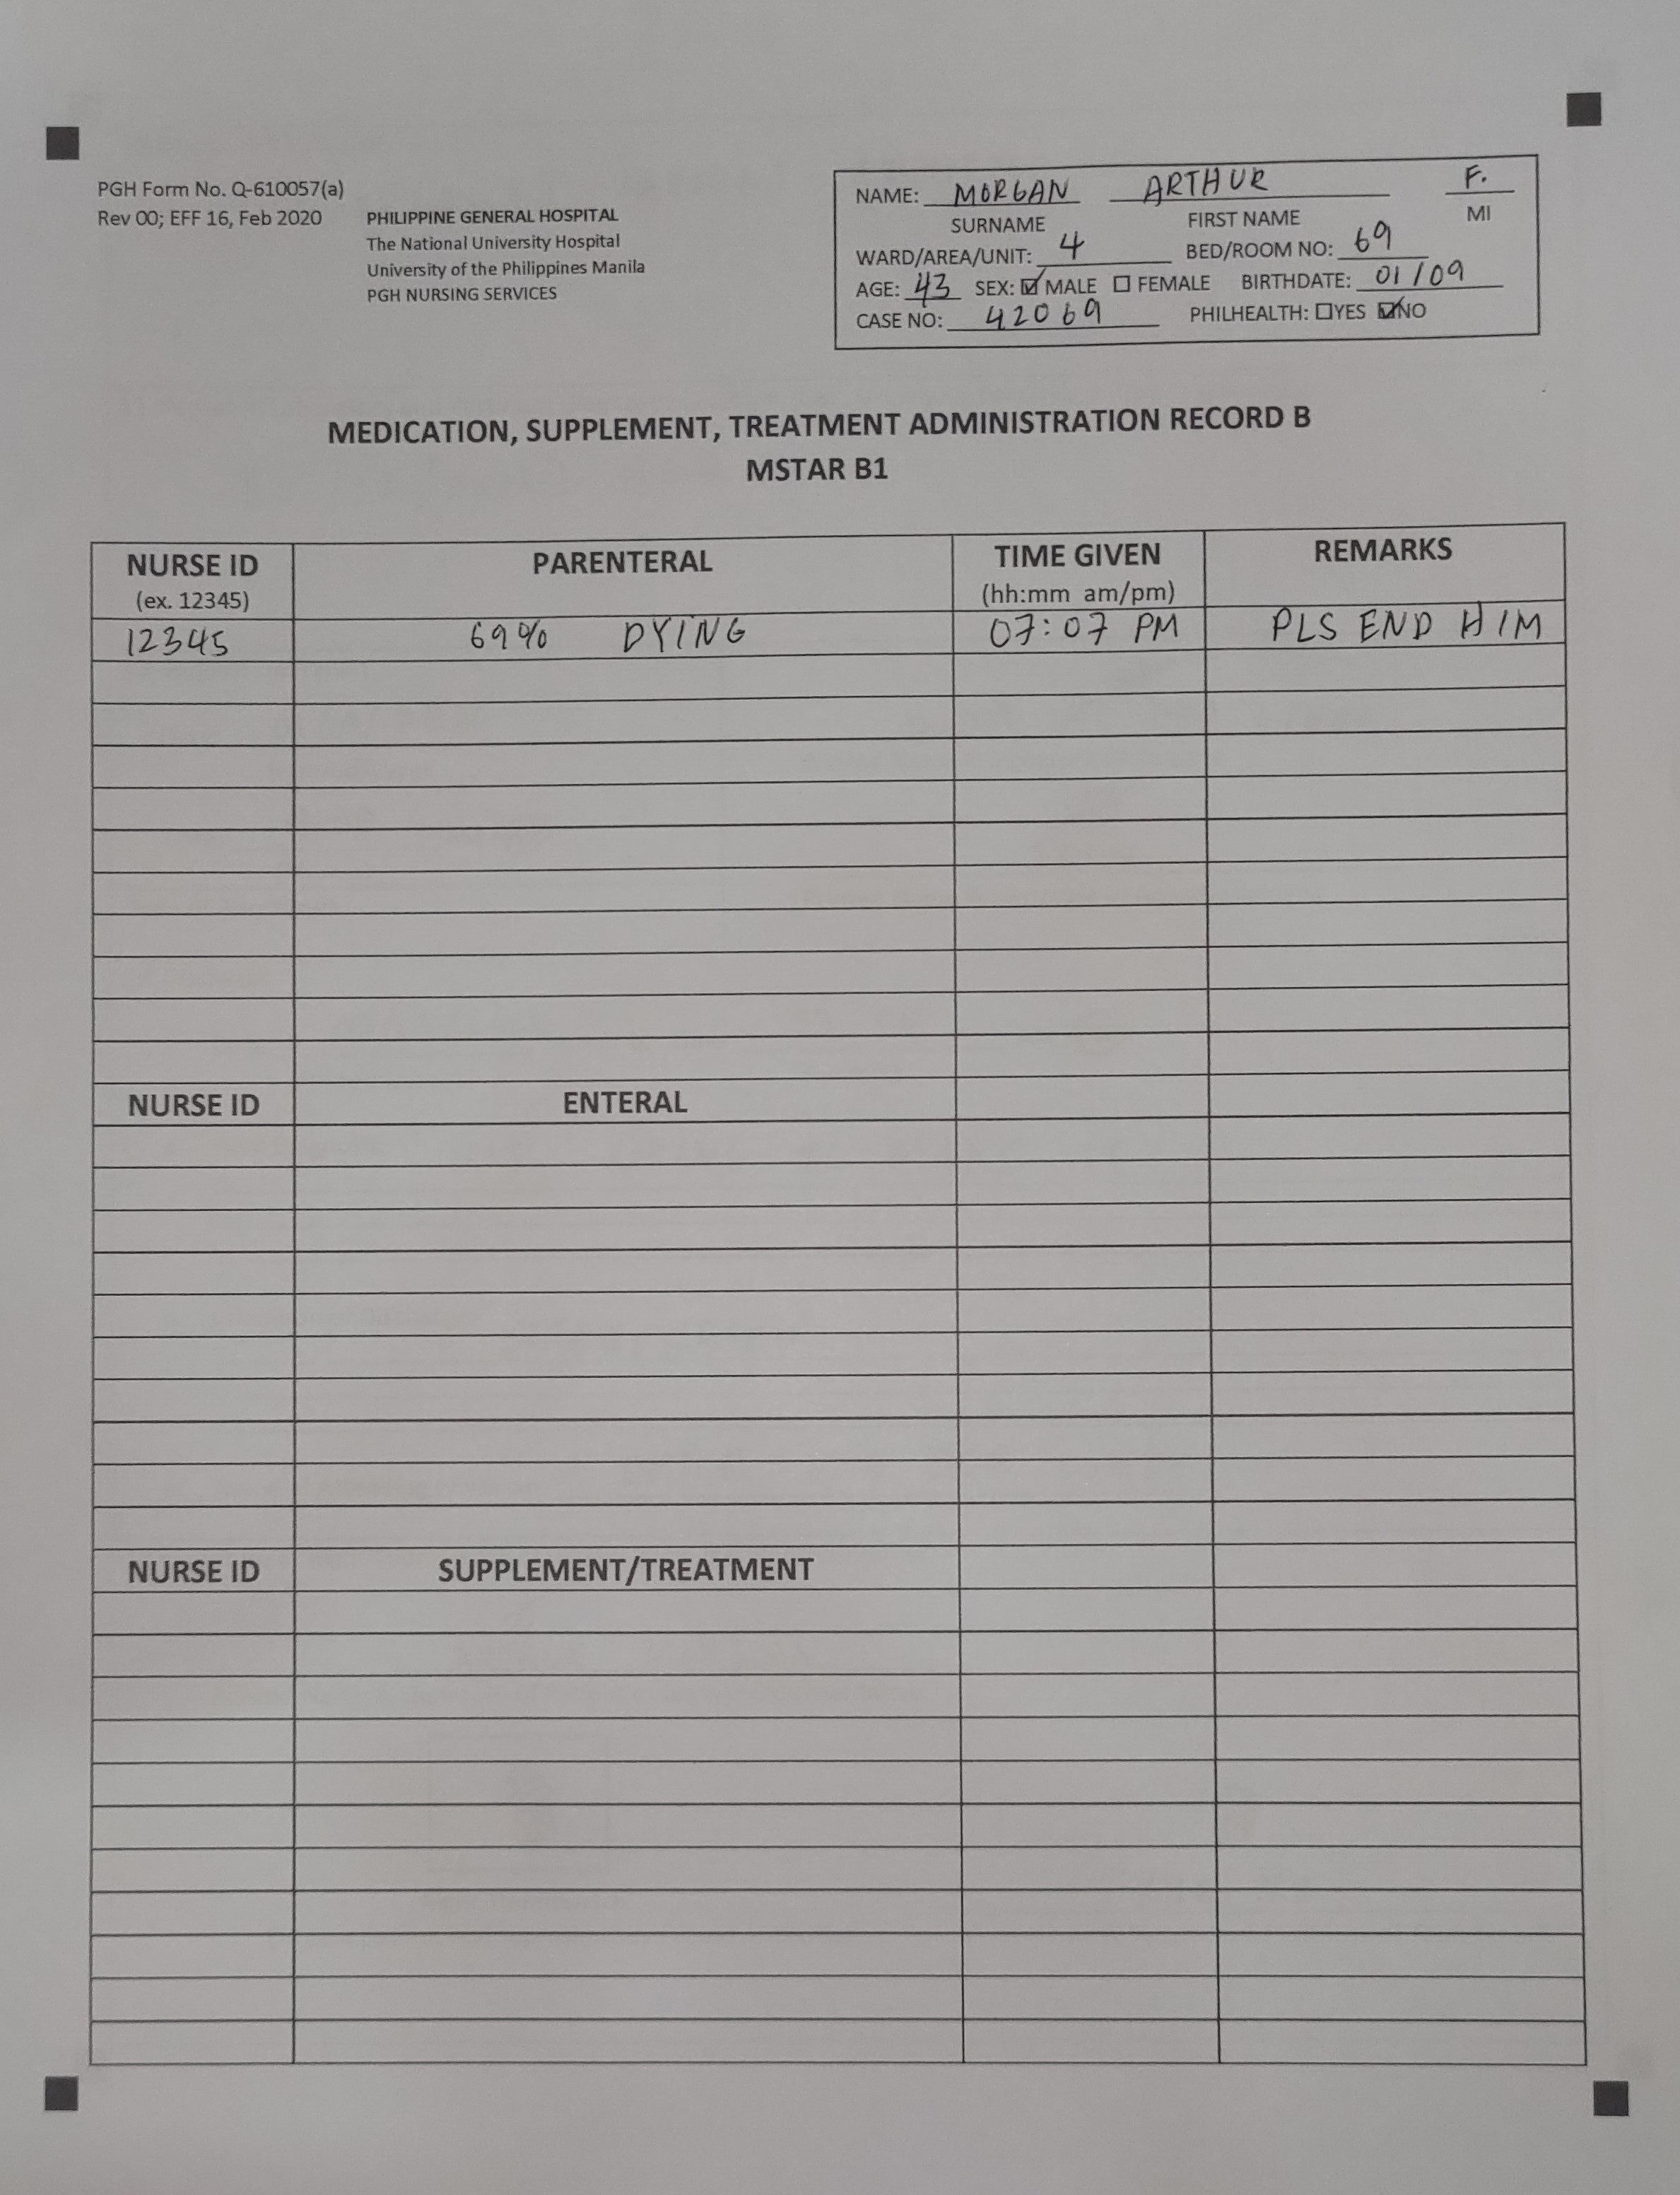 PGH Form No. Q-610057(a)
Rev 00; EFF 16, Feb 2020
PHILIPPINE GENERAL HOSPITAL
The National University Hospital
University of the Philippines Manila
PGH NURSING SERVICES
NAME: MORGAN ARTHUR F.
SURNAME FIRST NAME MI
WARD/AREA/UNIT: 4 BED/ROOM NO: 69
AGE: 43 SEX: ☑ MALE ☐ FEMALE BIRTHDATE: 01/09
CASE NO: 42069 PHILHEALTH: ☐YES ☑NO
MEDICATION, SUPPLEMENT, TREATMENT ADMINISTRATION RECORD B
MSTAR B1
NURSE ID PARENTERAL TIME GIVEN REMARKS
(ex. 12345) (hh:mm am/pm)
12345 69% DYING 07:07 PM PLS END HIM
NURSE ID ENTERAL
NURSE ID SUPPLEMENT/TREATMENT